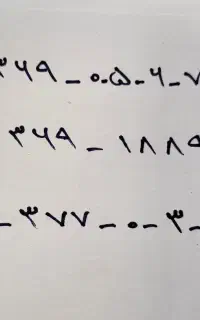 ۳۶۹-۰-۵-۶-۷
۳۶۹-۱۸۸۹
-۳۷۷-۰-۳-